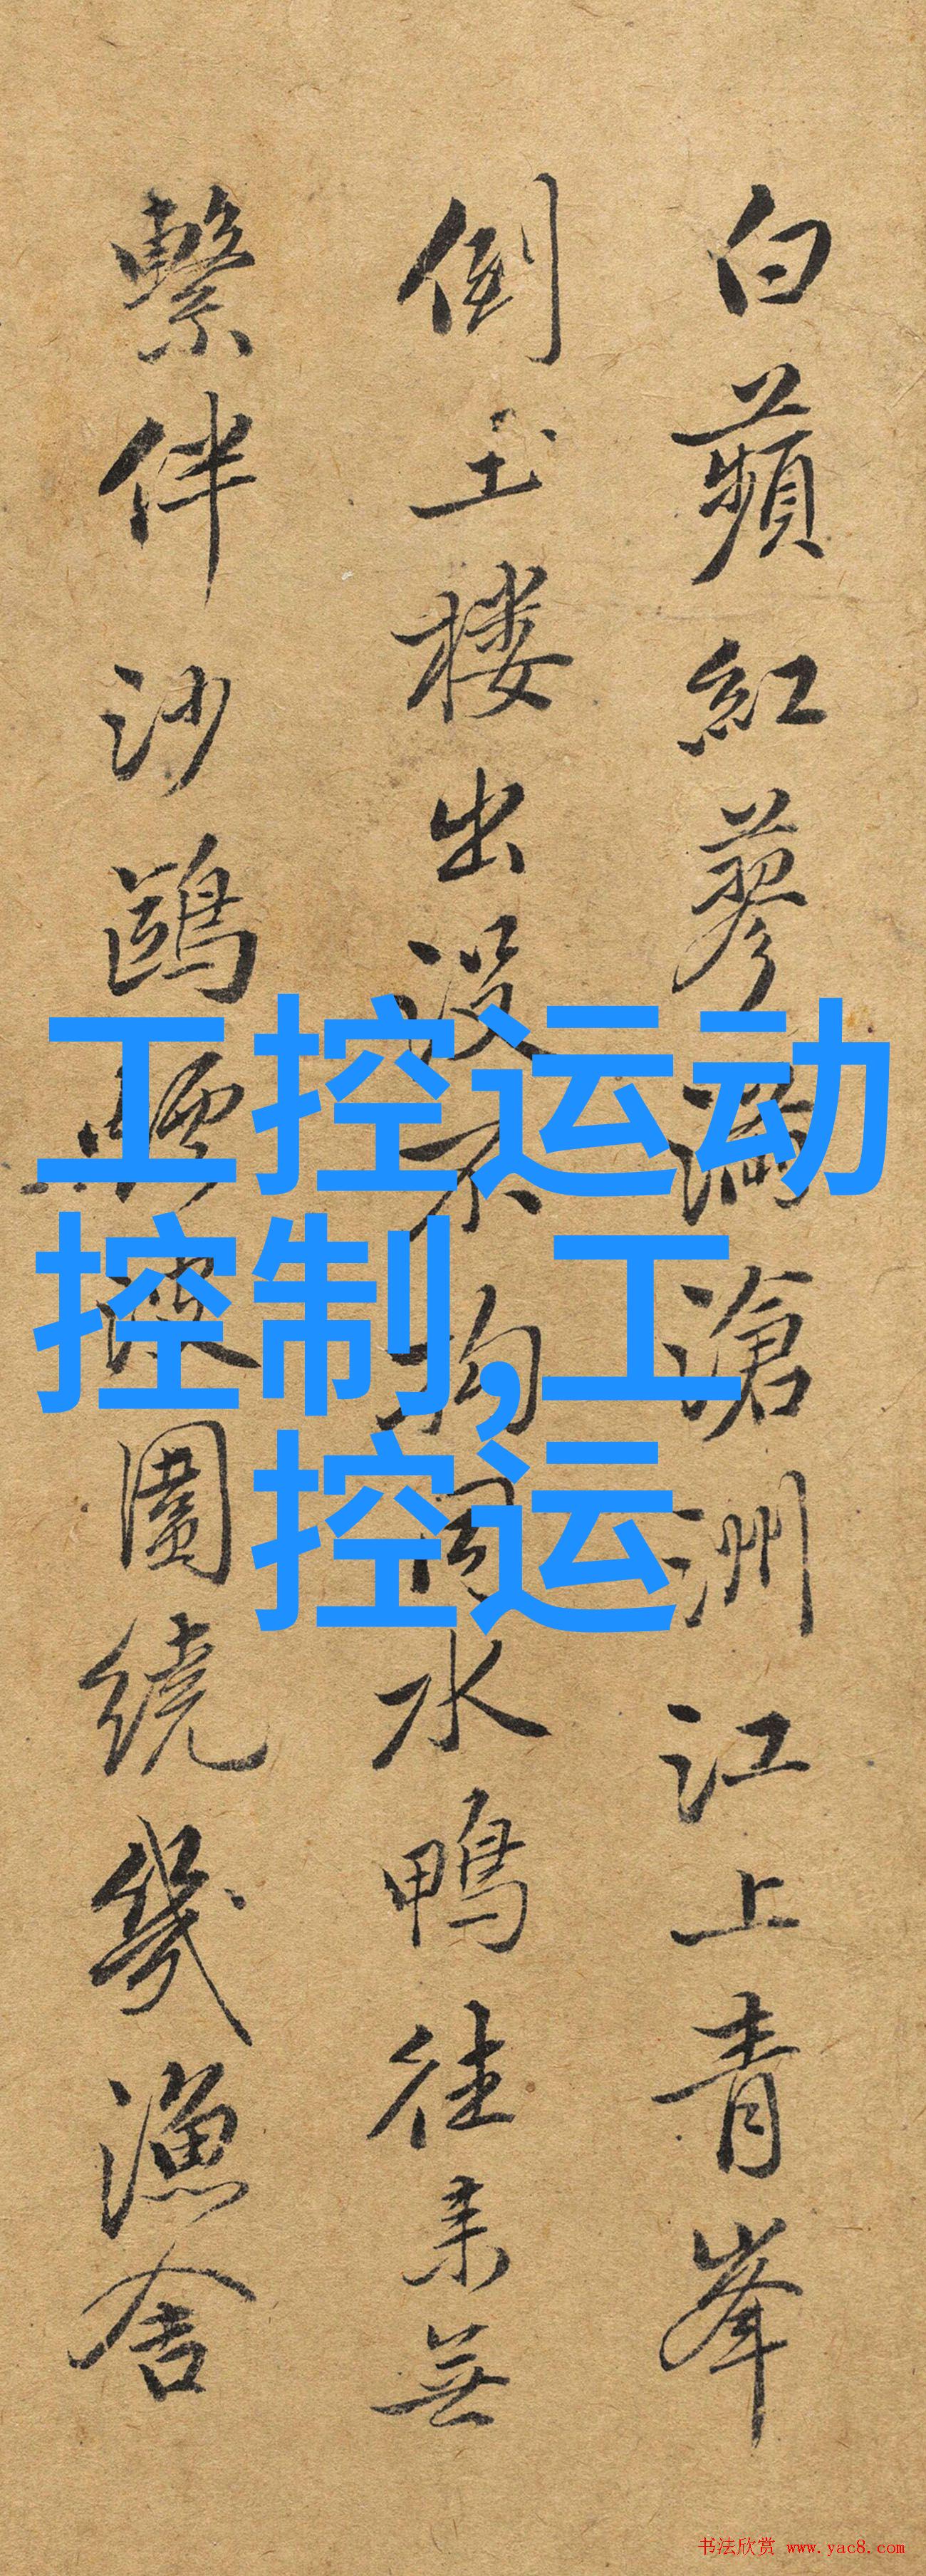 白蘋紅蓼滿滄洲江上青峯
倒玉楼出没不拘同水鴨往来無
繫伴沙鷗波圍繞幾漁舍
工控运动
控制,工
控运
书法欣赏 www.yac8.com